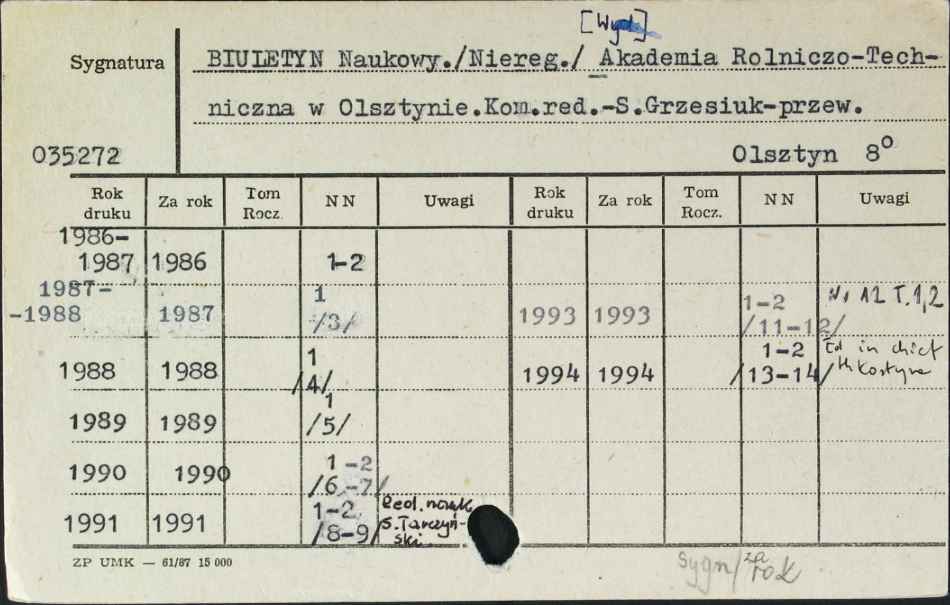 [Wyd]
Sygnatura
BIULETYN Naukowy./Niereg./ Akademia Rolniczo-Tech-
niczna w Olsztynie.Kom.red.-S.Grzesiuk-przew.
035272
Olsztyn 8°
Rok druku Za rok Tom Rocz. N N Uwagi Rok druku Za rok Tom Rocz. N N Uwagi
1986-
1987 1986 1-2
1987-
-1988 1987 1 /3/ 1993 1993 1-2 /11-12/ Nr 12 T.1,2
1988 1988 1 /4/ 1994 1994 1-2 /13-14/ Ed in chief
1989 1989 1 /5/
1990 1990 1-2 /6-7/
1991 1991 1-2 /8-9/ Red. nauk S. Tarczyń-
ski
ZP UMK — 61/87 15 000
sygn/za rok